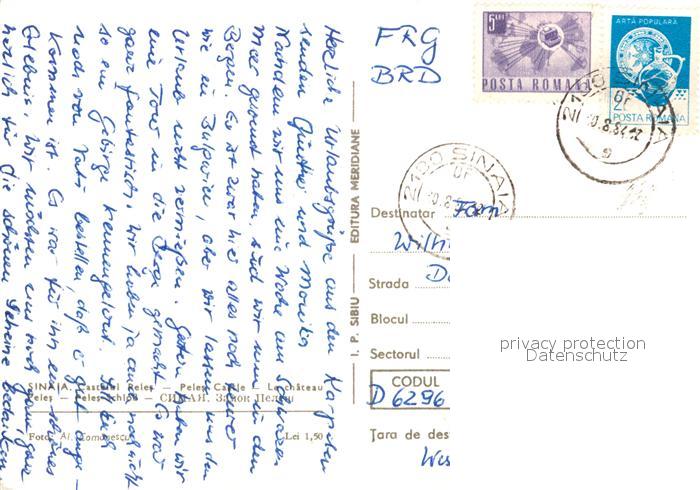 Herzliche Urlaubsgrüße aus den Karpaten
senden Günther und Monika.
Nachdem wir uns eine Woche am Schwarzen
Meer gesonnt haben, sind wir nun in den
Bergen. Es ist zwar hier alles noch teurer
wie in Bulgarien, aber wir lassen uns den
Urlaub nicht vermießen. Gestern haben wir
eine Tour in die Berge gemacht. Es war
ganz fantastisch, wir haben ja auch noch nicht
so ein Gebirge kennengelernt. Ich soll
noch von Vati bestellen, daß er gut ange-
kommen ist. Es war für ihn ein schönes
Erlebnis. Wir möchten uns noch ganz, ganz
herzlich für die schönen Geheine bedanken
SINAIA. Castelul Peleș — Peles Castle — Le château
Peles — Peles-Schloß — СИНАЯ. Замок Пелеш
Foto: Al. Comănescu
Lei 1,50
I. P. SIBIU — EDITURA MERIDIANE
FRG
BRD
5 LEI
POSTA ROMANA
ARTĂ POPULARĂ
2L
POSTA ROMANA
2180 SINAIA
2180 SINAIA
Destinatar Fam
Wilh
Strada D
Blocul
Sectorul
CODUL
D 6296
Țara de des
Wes
privacy protection
Datenschutz